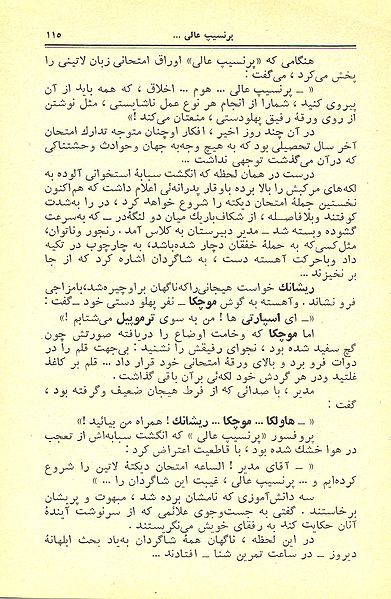 پرنسیپ عالی ... ۱۱۵
هنگامی که «پرنسیپ عالی» اوراق امتحانی زبان لاتینی را
پخش می‌کرد ، می‌گفت :
« ــ پرنسیپ عالی ... هوم ... اخلاق ، که همه باید از آن
پیروی کنید ، شمارا از انجام هر نوع عمل ناشایستی ، مثل نوشتن
از روی ورقهٔ رفیق پهلودستی ، منعتان می‌کند !»
در آن چند روز اخیر ، افکار اوچنان متوجه تدارك امتحان
آخر سال تحصیلی بود که به هیچ وجه‌به جهان وحوادث وحشتناکی
که درآن می‌گذشت توجهی نداشت ...
درست در همان لحظه که انگشت سبابهٔ استخوانی آلوده به
لکه‌های مرکبش را بالا برده باوقار پدرانه‌ئی اعلام داشت که هم‌اکنون
نخستین جملهٔ امتحان دیکته را شروع خواهد کرد ، در را به‌شدت
کوفتند وبلافاصله ، از شکاف‌باریك میان دو لنگهٔ‌در ــ که به‌سرعت
گشوده وبسته شد ــ مدیر دبیرستان به کلاس آمد . رنجور وناتوان،
مثل‌کسی‌که به حملهٔ خفقان دچار شده‌باشد، به چارچوب در تکیه
داد وباحرکت آهستهٔ دست ، به شاگردان اشاره کرد که از جا
بر نخیزند ...
ریشانك خواست هیجانی‌راکه‌ناگهان براوچیره‌شد،بامزاحی
فرو نشاند . وآهسته به گوش موچکا ــ نفر پهلو دستی خود ــ گفت :
« ــ ای اسپارتی ها ! من به سوی ترموپیل می‌شتابم !»
اما موچکا که وخامت اوضاع را دریافته صورتش چون
گچ سفید شده بود ، نجوای رفیقش را نشنید : بی‌جهت قلم را در
دوات فرو برد و بالای ورقهٔ امتحانی خود قرار داد ... قلم بر کاغذ
غلتید ودر هر گردش خود لکه‌ئی برآن باقی گذاشت .
مدیر ، با صدائی که از فرط هیجان ضعیف وگرفته بود ،
گفت :
« ــ هاولکا ... موچکا ... ریشانك ! همراه من بیائید !»
پروفسور «پرنسیپ عالی » که انگشت سبابه‌اش از تعجب
در هوا خشك شده بود ، با قاطعیت اعتراض کرد :
« ــ آقای مدیر ! الساعه امتحان دیکتهٔ لاتین را شروع
کرده‌ایم و ... پرنسیپ عالی ، غیبت این شاگردان را ... »
سه دانش‌آموزی که نامشان برده شد ، مبهوت و پریشان
برخاستند . گفتی به جست‌وجوی علائمی که از سرنوشت آیندهٔ
آنان حکایت کند به رفقای خویش می‌نگریستند .
در این لحظه ، ناگهان همهٔ شاگردان به‌یاد بحث ابلهانهٔ
دیروز ــ در ساعت تمرین شنا ــ افتادند ...